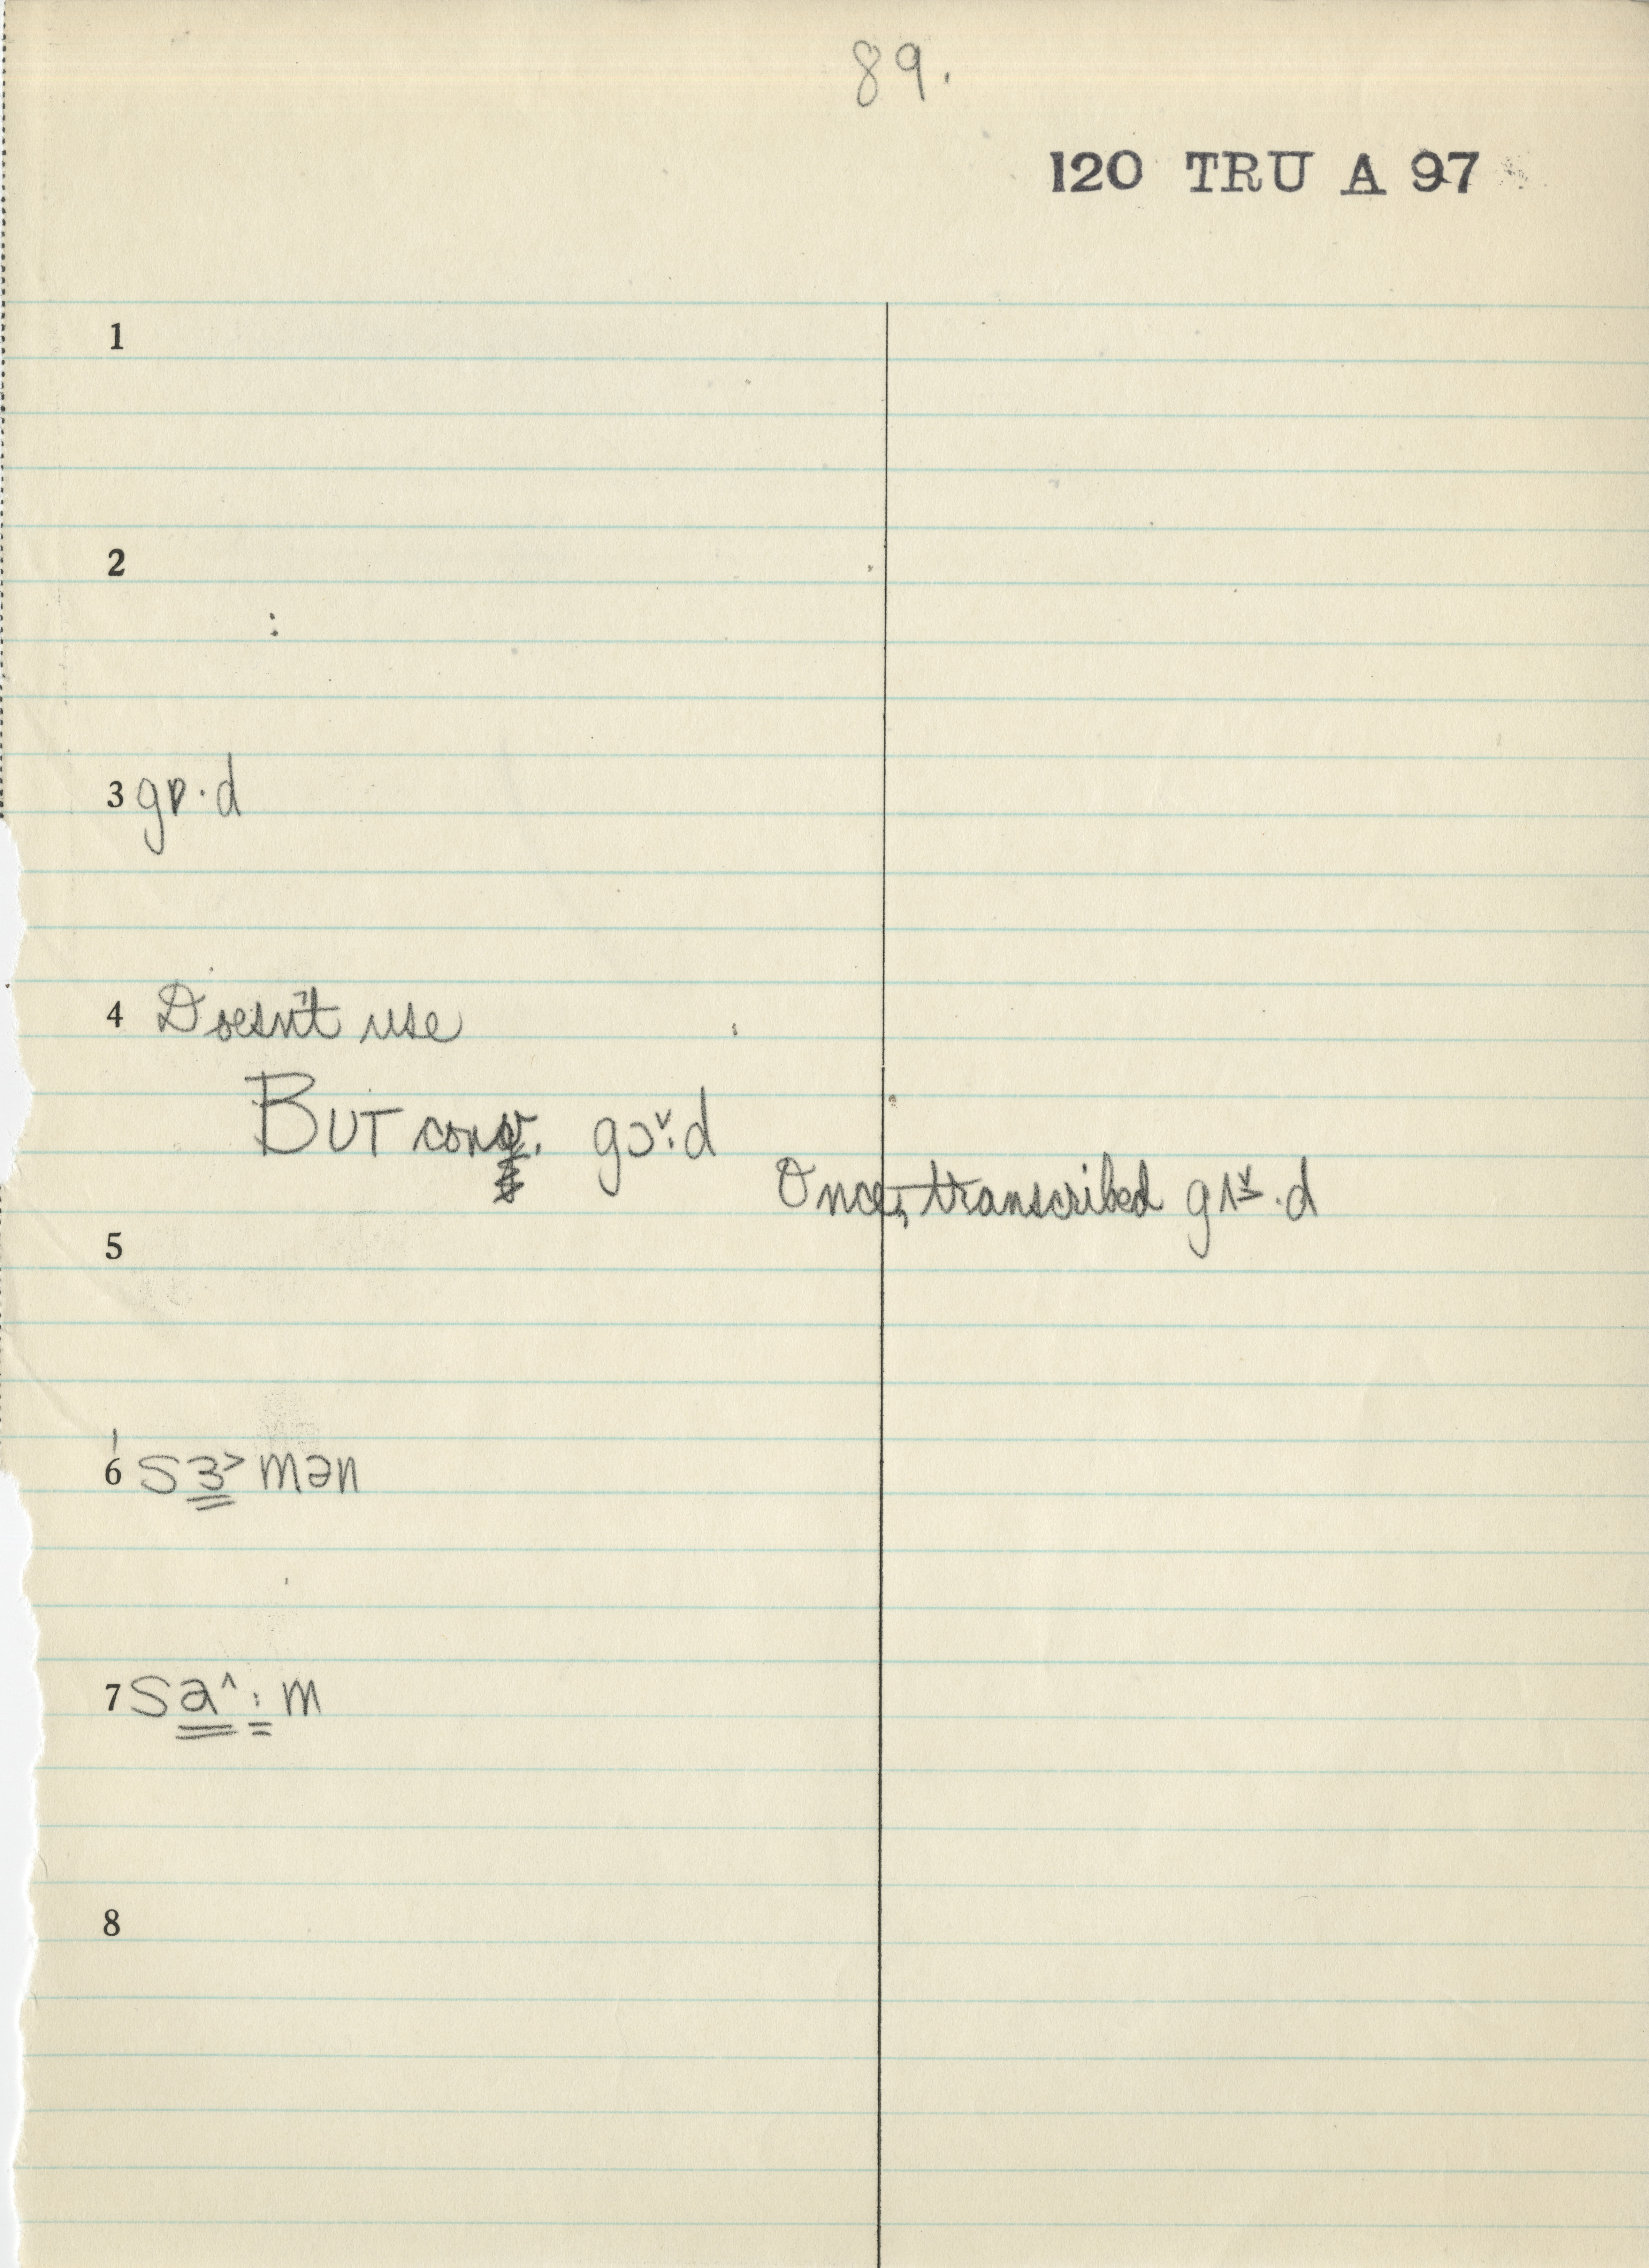 89.
120 TRU A 97
1
2
3 gɒ·d
4 Doesn't use
BUT conv. gɔˇ:d
Once, transcribed gʌˇ·d
5
6 'sɜ˃mən
7 sa˄:m
8